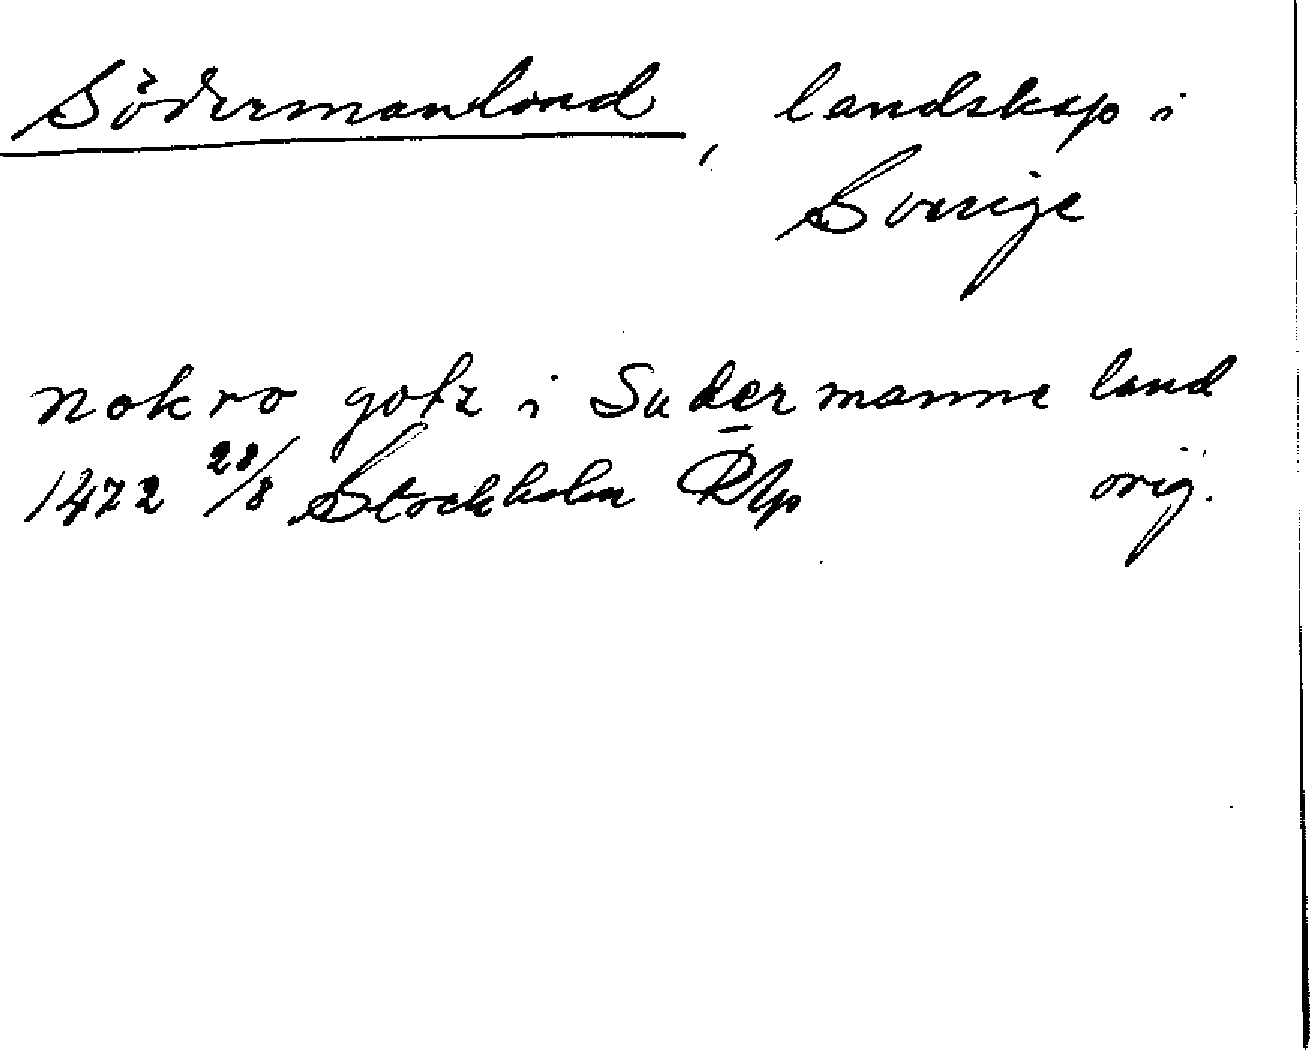 Södermanland, landskap i
Sverige
nokro gotz i Sudermanne land
1472 28/8 Stockholm Rlp orig.